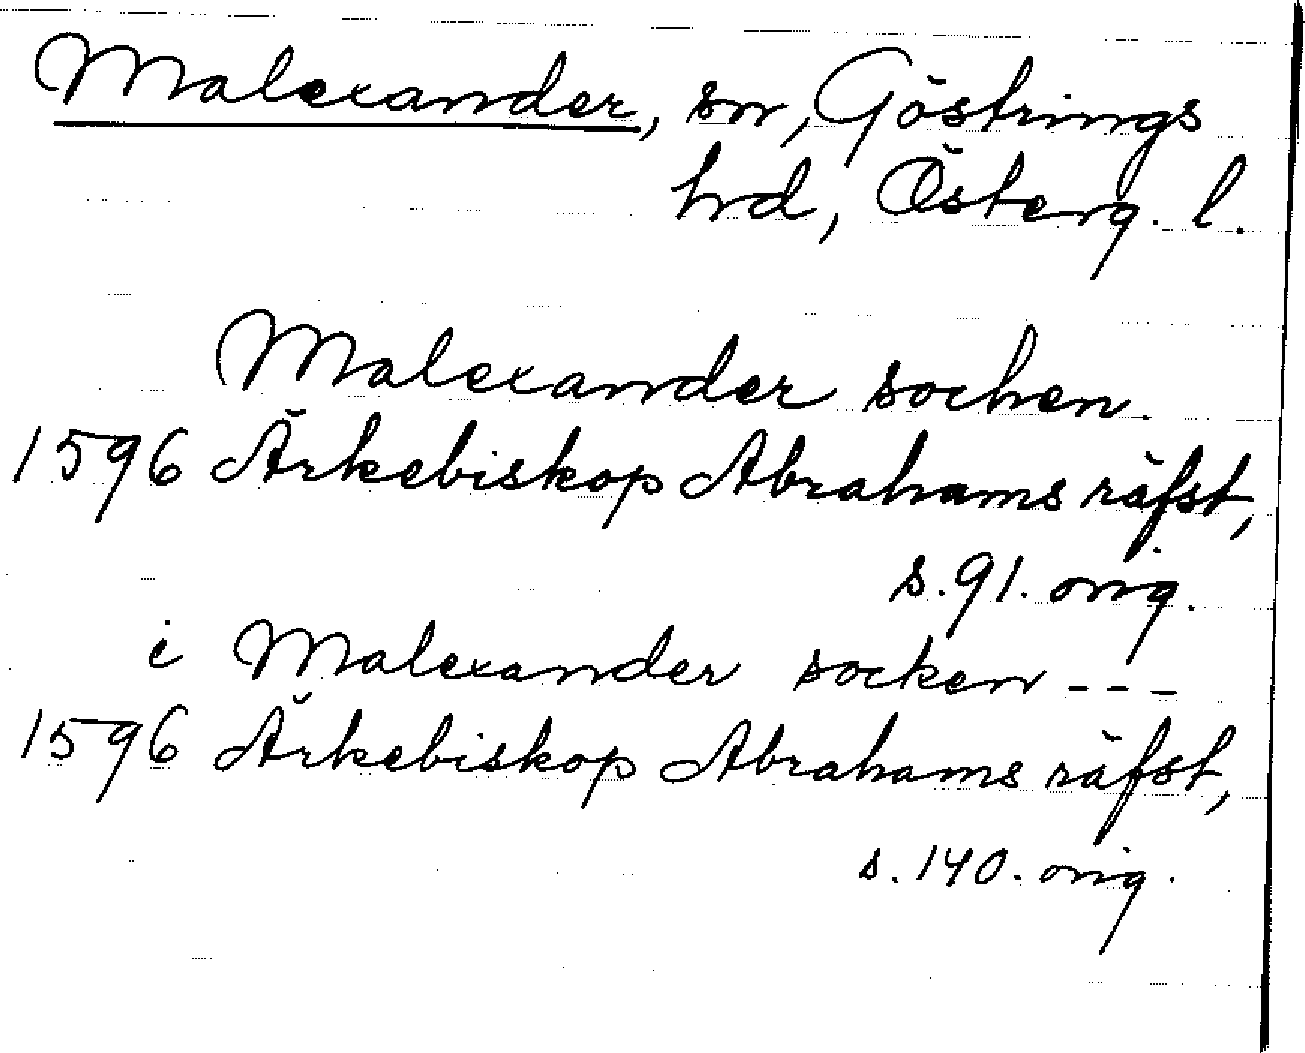 Malexander, sn, Göstrings
hrd, Österg. l.
Malexander sochen.
1596 Ärkebiskop Abrahams räfst,
s. 91. orig.
i Malexander socken ---
1596 Ärkebiskop Abrahams räfst,
s. 140. orig.